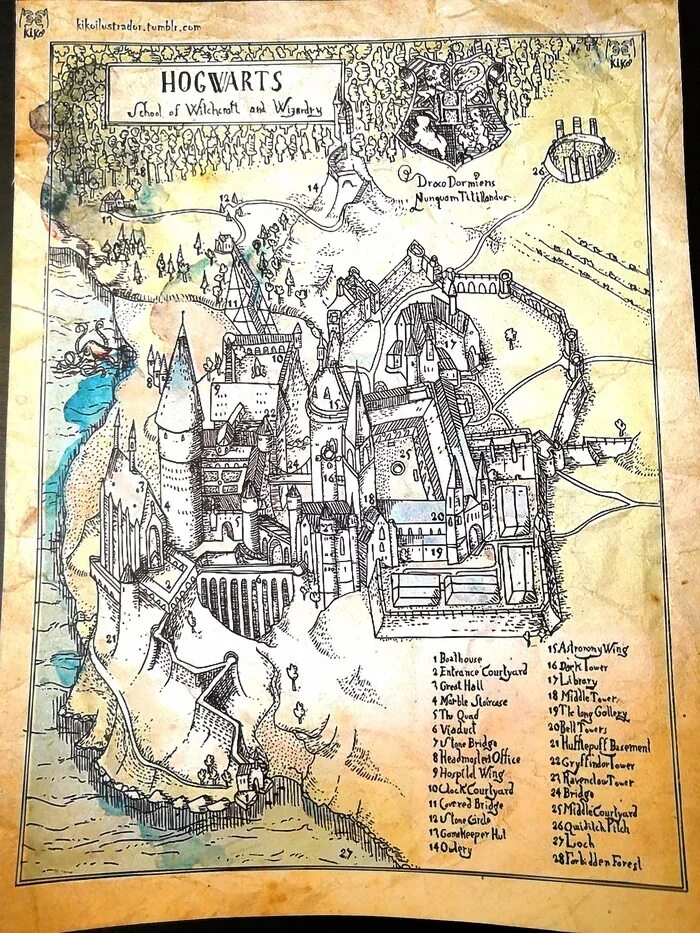 KIKO
kikoilustrador.tumblr.com
KIKO
HOGWARTS
School of Witchcraft and Wizardry
Draco Dormiens
Nunquam Titillandus
28
26
14
12
13
11
10
8
9
17
22
15
3
24
25
16
4
18
20
23
19
2
21
27
1 Boathouse
2 Entrance Courtyard
3 Great Hall
4 Marble Staircase
5 The Quad
6 Viaduct
7 Stone Bridge
8 Headmasters Office
9 Hospital Wing
10 Clock Courtyard
11 Covered Bridge
12 Stone Circle
13 Gamekeeper Hut
14 Owlery
15 Astronomy Wing
16 Dark Tower
17 Library
18 Middle Tower
19 The long Gallery
20 Bell Towers
21 Hufflepuff Basement
22 Gryffindor Tower
23 Ravenclaw Tower
24 Bridge
25 Middle Courtyard
26 Quiditch Pitch
27 Loch
28 Forbidden Forest